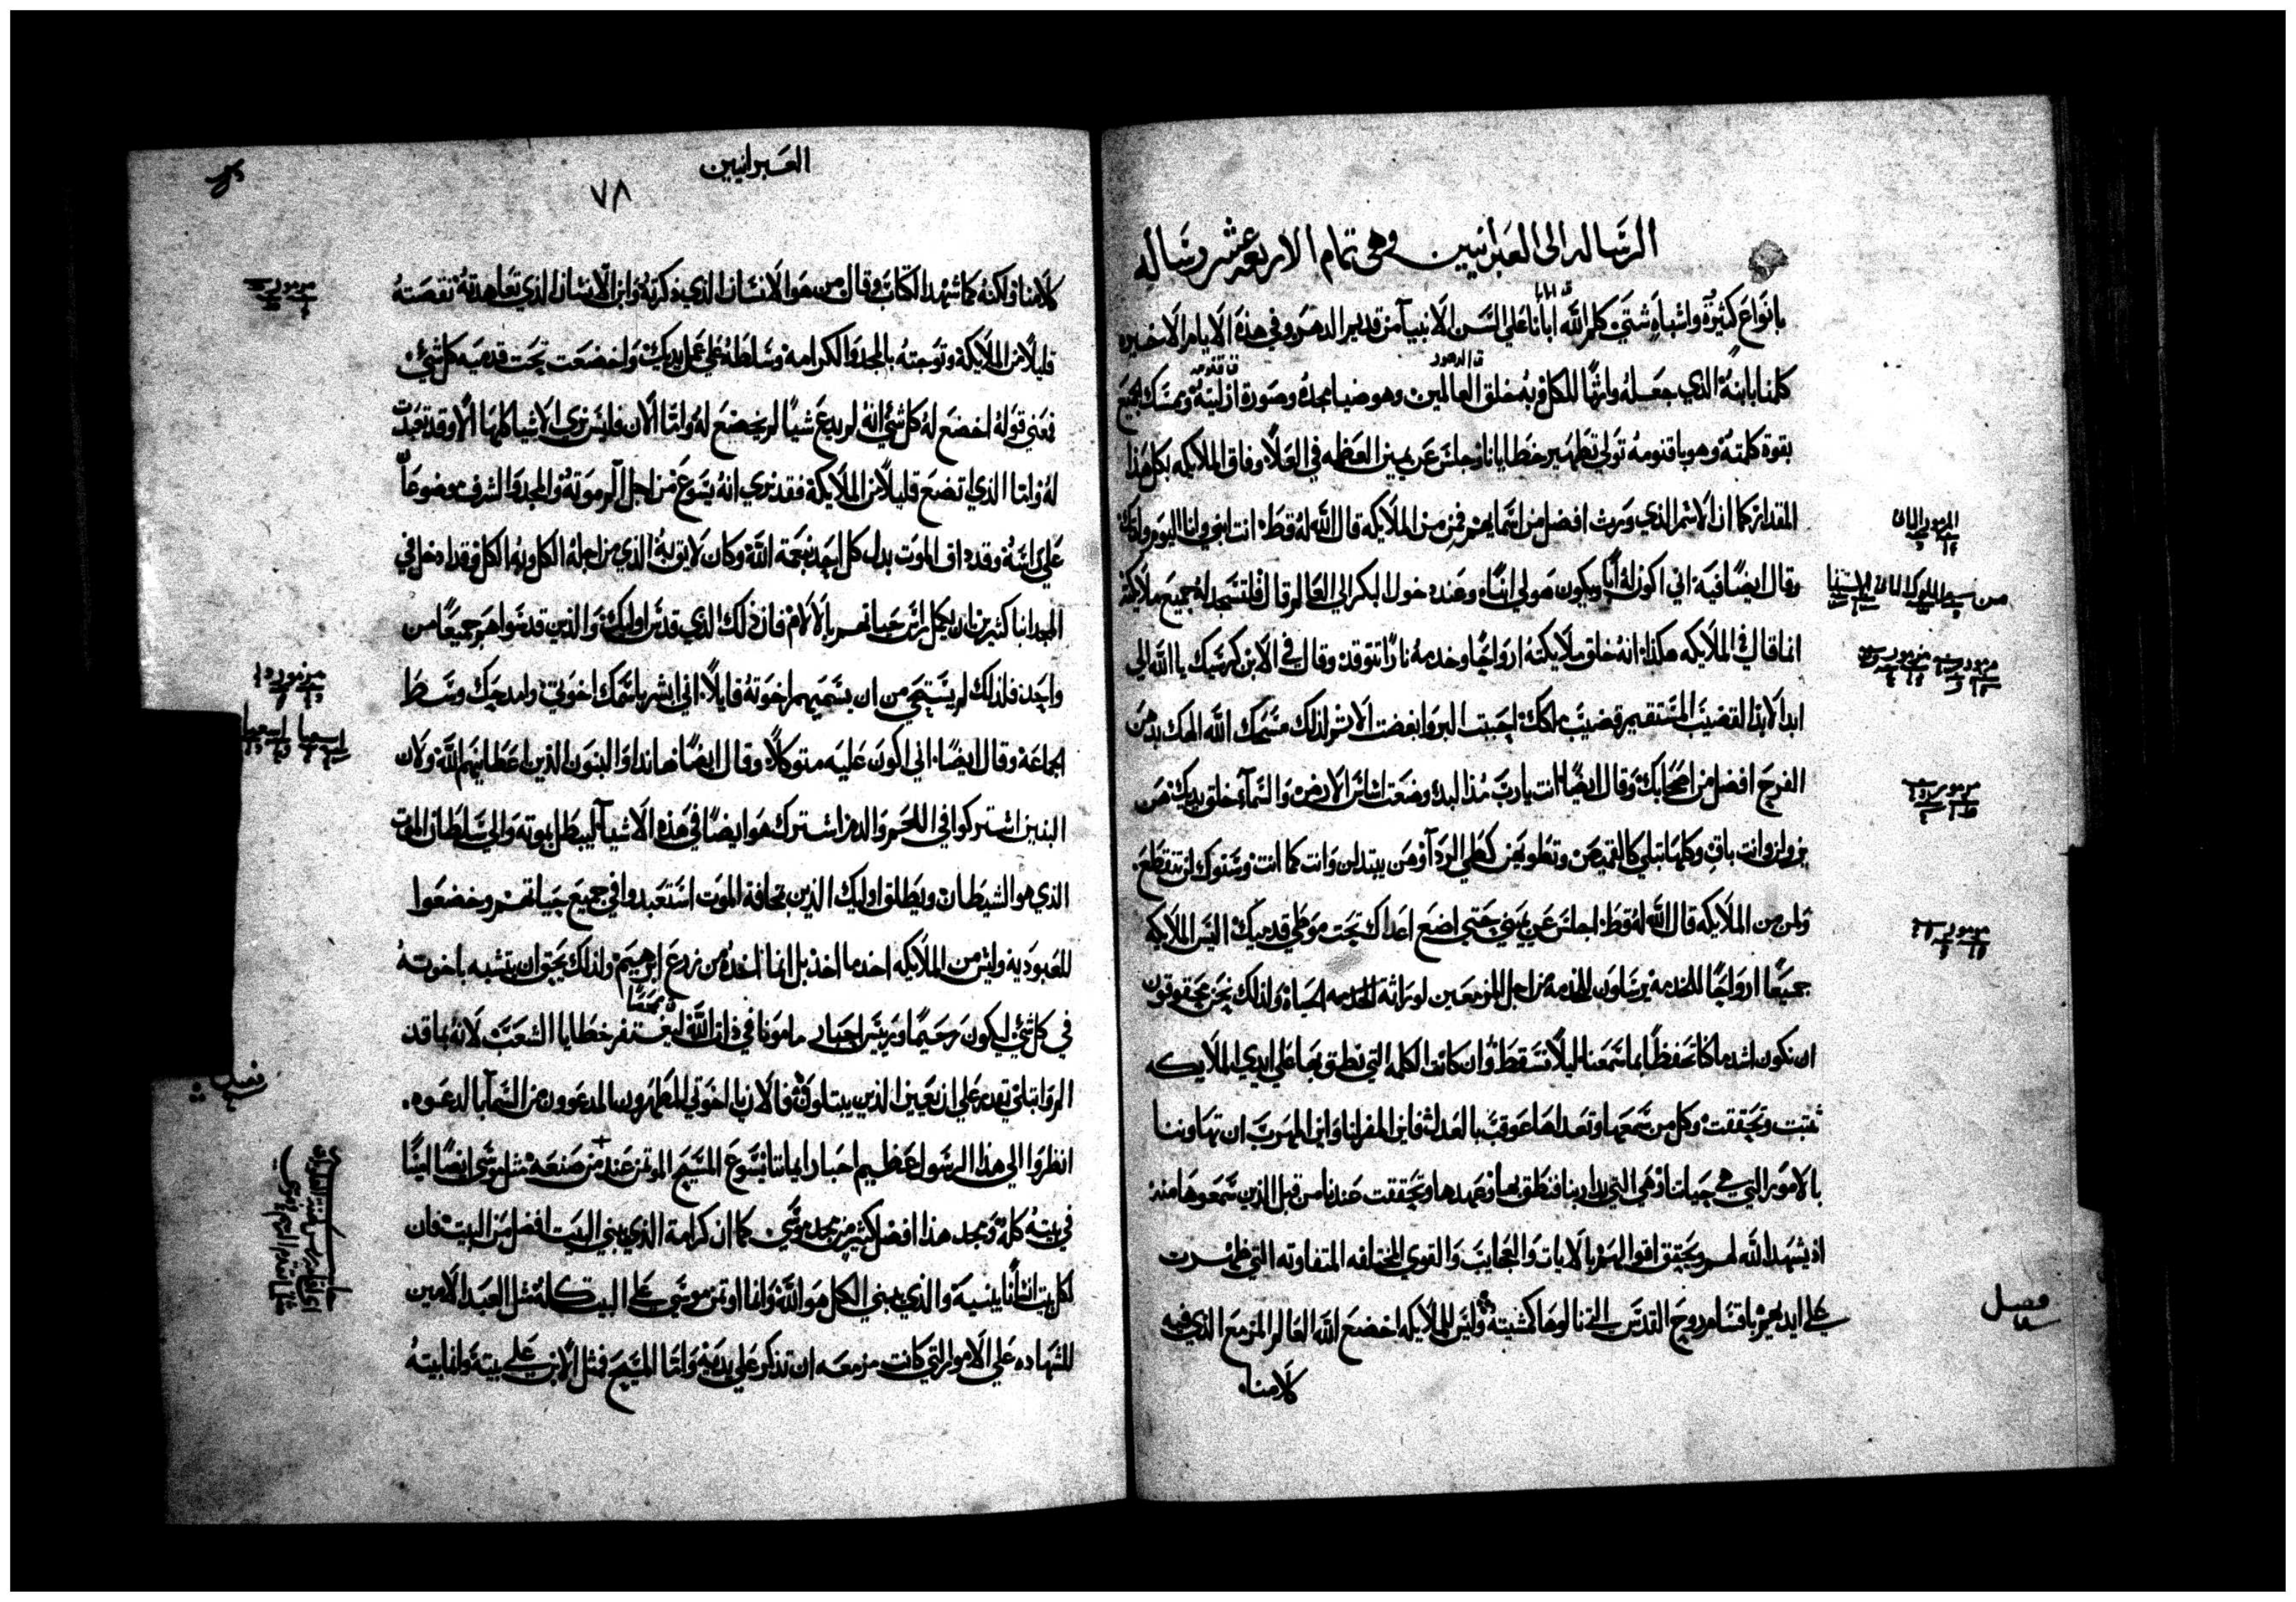 الرسالة الى العبرانيين وهى تمام الاربعة عشر رساله
بانواع كثيرة واشباه شتي كلم الله ابانا علي السن الانبيآ من قديم الدهر وفي هذه الايام الاخيره
كلمنا بابنه الذي جعله وارثًا للكل وبه خلق العالمين وهو ضيا مجده وصورة ازليته ويمسك بجميع
بقوة كلمته وهو باقنومه تولي تطهير خطايانا وجلس عن يمين العظمه في العلا وفاق الملايكه بكل هذا
المقدار كما ان الاسم الذي ورث افضل من اسمايهم فمن من الملايكه قال الله له قط انت ابني وانا اليوم ولدتك
وقال ايضًا فيه اني اكون له أبًا ويكون هو لي ابنًا وعند دخول البكر الي العالم قال فلتسجد له جميع ملايكته
انما قال في الملايكه هكذا انه خلق ملايكته ارواحًا وخدمه نارًا تتوقد وقال في الابن كرسيك يا الله الي
ابد الابد القضيب المستقيم قضيب ملكك احببت البر وابغضت الاثم لذلك مسحك الله الهك بدهن
الفرح افضل من اصحابك وقال ايضًا انت يارب مذ البدء وضعت اساس الارض والسمآء خلق يديك هن
يزولن وانت باقٍ وكلها تبلي كالقميص وتطويهن كطي الردآ وهن يبتدلن وانت كما انت وسنوك لن تنقطع.
ولمن من الملايكه قال الله له قط اجلس عن يميني حتي اضع اعداك تحت موطي قدميك اليس الملايكه
جميعًا ارواحًا للخدمه يرسلون للخدمة من اجل المزمعين لوراثة الحياة ولذلك نحن محقوقون
ان نكون اشد ما كنا تحفظًا بما سمعنا ليلا نسقط وان كانت الكلمه التي نطق بها علي ايدي الملايكه
ثبتت وتحققت وكل من سمعها وتعداها عوقب بالعدل فاين المفر لنا واين المهرب ان تهاوننا
بالامور التي هي حياتنا وهي التي بدا ربنا فنطق بها وعهدها وتحققت عندنا من قبل الذين سمعوها منه
اذ يشهد الله لهم ويحقق اقوالهم بالايات والعجايب والقوي المختلفه المتفاوته التي ظهرت
علي ايديهم باقسام روح القدس التي نالوها كمشيته وليس للملايكه اخضع الله العالم المزمع الذي فيه
كلامنا
المزمور الثانى
مزمور
فصل
العبرانيين
٧٨
كلامنا ولكنه كما شهد الكتاب وقال من هو الانسان الذي ذكرته وابن الانسان الذي تعاهدته نقصته
قليلًا من الملايكة وتوجته بالمجد والكرامه وسلطته علي عمل يديك واخضعت تحت قدميه كل شي
فعني قوله اخضع له كل شي انه لم يدع شيًا لم يخضع له واما الان فليس نري الاشيا كلها الا وقد تعبدت
له واما الذي اتضع قليلًا من الملايكة فقد نري انه يسوع من اجل الم موته والمجد والشرف موضوعًا
علي راسه وقد ذاق الموت بدل كل احد بنعمة الله وكان لايق به الذي من اجله الكل وبه الكل وقد ادخل في
المجد ابنا كثيرين ان يكمل راس حياتهم بالالام فان ذلك الذي قدس اوليك والذين قدسوا هم جميعًا من
واحد فلذلك لم يستحي من ان يسميهم اخوته قايلًا اني ابشر باسمك اخوتي وامدحك وسط
الجماعة وقال ايضًا اني اكون عليه متوكلًا وقال ايضًا هانذا والبنون الذين اعطانيهم الله ولان
البنين اشتركوا في اللحم والدم اشترك هو ايضًا في هذه الاشيآ ليبطل بموته والي سلطان الموت
الذي هو الشيطان ويطلق اوليك الذين بمخافة الموت استعبدوا في جميع حياتهم وخضعوا
للعبودية وليس من الملايكه اخذ ما اخذ بل انما اخذه من زرع ابرهيم ولذلك يحق ان يتشبه باخوته
في كل شي ليكون رحيمًا ورييس احبار مامونا في ذات الله ليغتفر خطايا الشعب لانه بما قد
الم وابتلي يقدر علي ان يعين الذين يبتلون فالان يا اخوتي المطهرون المدعوون من السمآ بالدعوه.
انظروا الي هذا الرسول عظيم احبار ايماننا يسوع المسيح الموتمن عند من صنعه مثل موسي ايضًا
في بيته كله ومجد هذا افضل كثير من مجد موسي. كما ان كرامة الذي يبني البيت افضل من البيت فان
لكل بيت انسانًا يبنيه والذي يبني الكل هو الله وانما اوتمن موسي علي البيت كله مثل العبد الامين
للشهاده علي الامور التي كانت مزمعه ان تذكر علي يديه واما المسيح فمثل الابن علي بيته وانما بيته